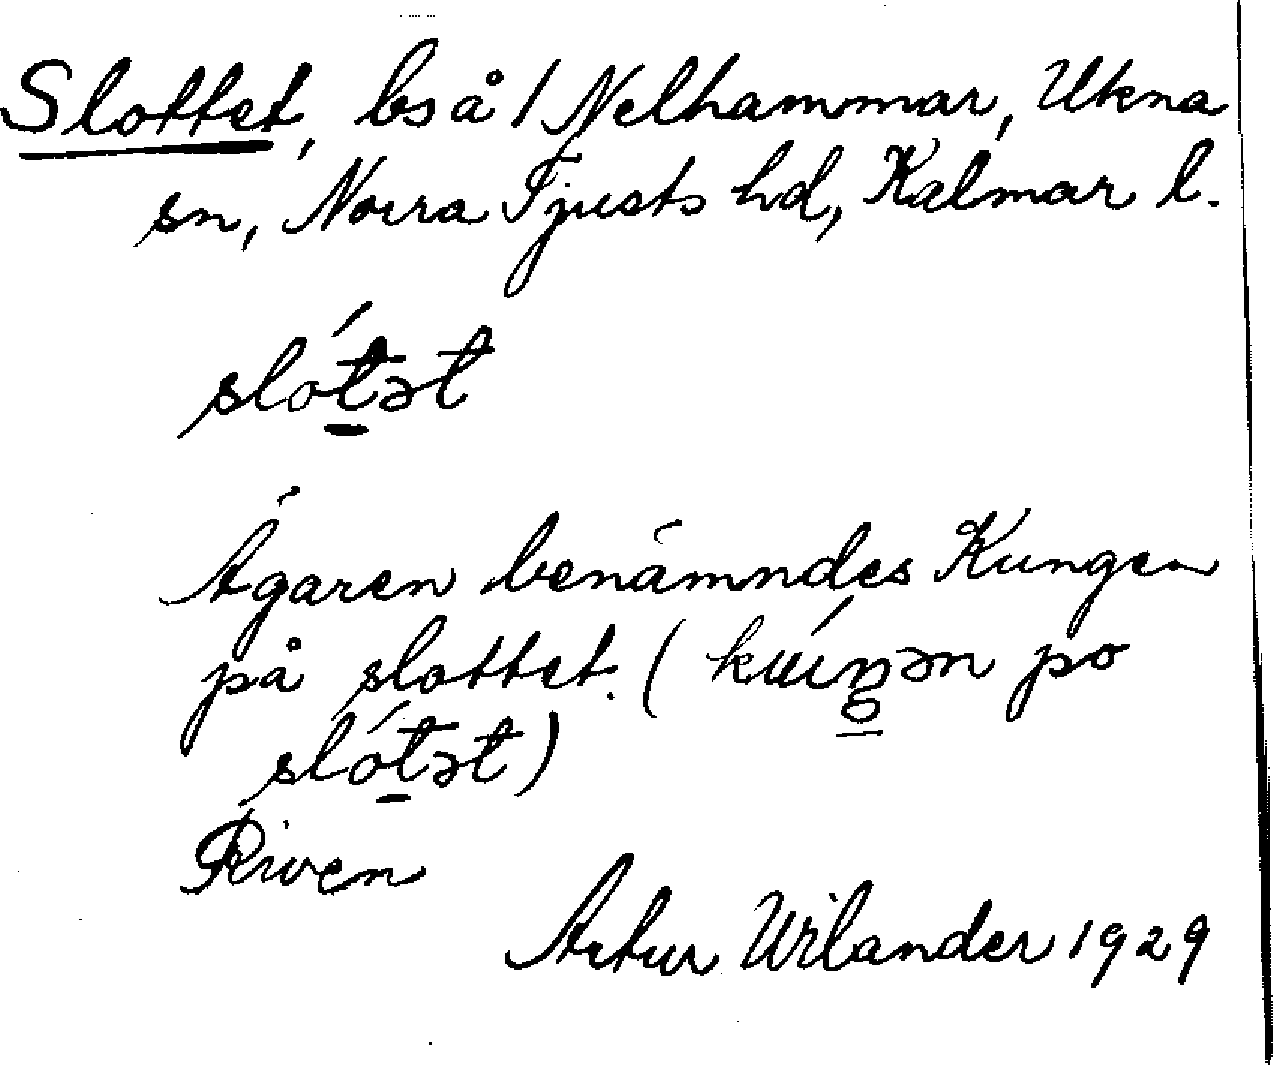 Slottet, bs å 1 Nelhammar, Ukna
sn, Norra Tjusts hd, Kalmar l.
slót̠ət
Ägaren benämndes Kungen
på slottet. (kɯ́ŋ̠ən po
slót̠ət)
Riven
Artur Wilander 1929